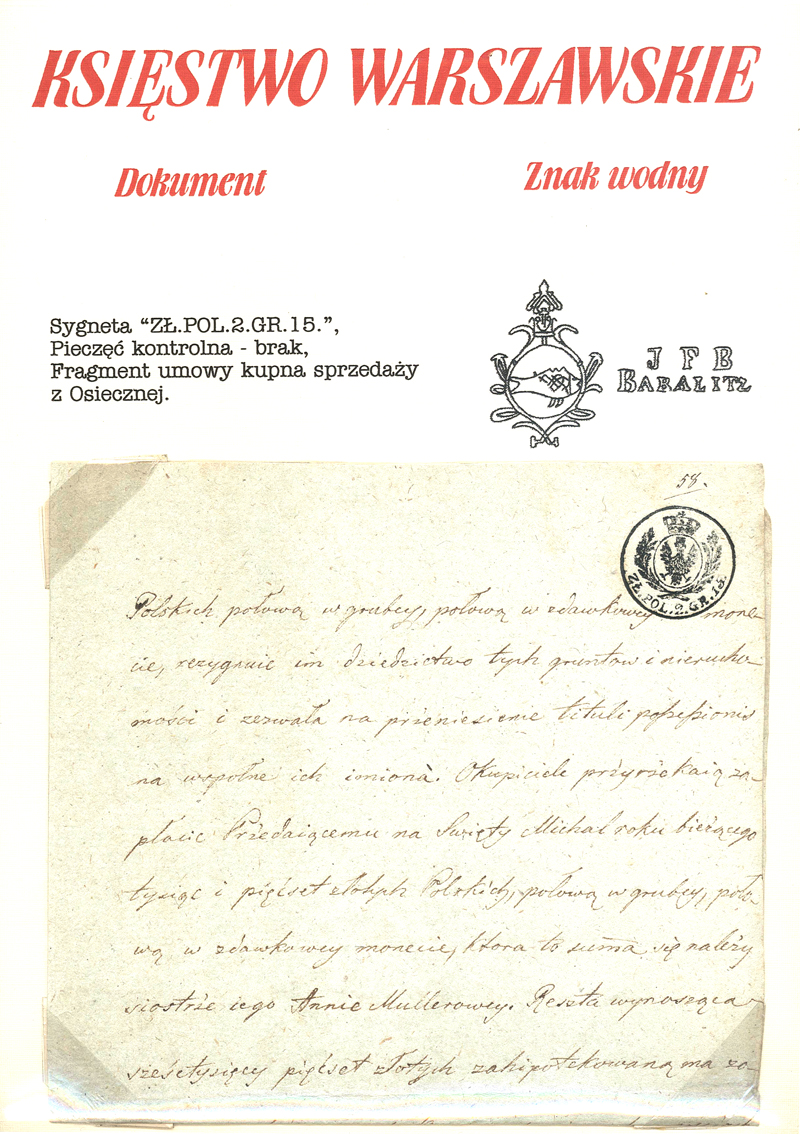 KSIĘSTWO WARSZAWSKIE
Dokument
Znak wodny
Sygneta “ZŁ.POL.2.GR.15.”,
Pieczęć kontrolna - brak,
Fragment umowy kupna sprzedaży
z Osiecznej.
J F B
BARALITZ
58.
ZŁ.POL.2.GR.15.
Polskich połową w grubey, połową w zdawkowey mone-
cie, rezygnuie im dziedzictwo tych gruntow i nierucho-
mości i zezwala na przeniesienie tituli possessionis
na wspolne ich imiona. Okupiciele przyrzekaią za-
płacic Przedaiącemu na Swięty Michał roku bieżącego
tysiąc i pięćset złotych Polskich, połową w grubey, poło-
wą w zdawkowey monecie, ktora to summa się należy
siostrze iego Annie Mullerowey. Reszta wynosząca
sześćtysięcy pięćset złotych zahipotekowaną ma zo-